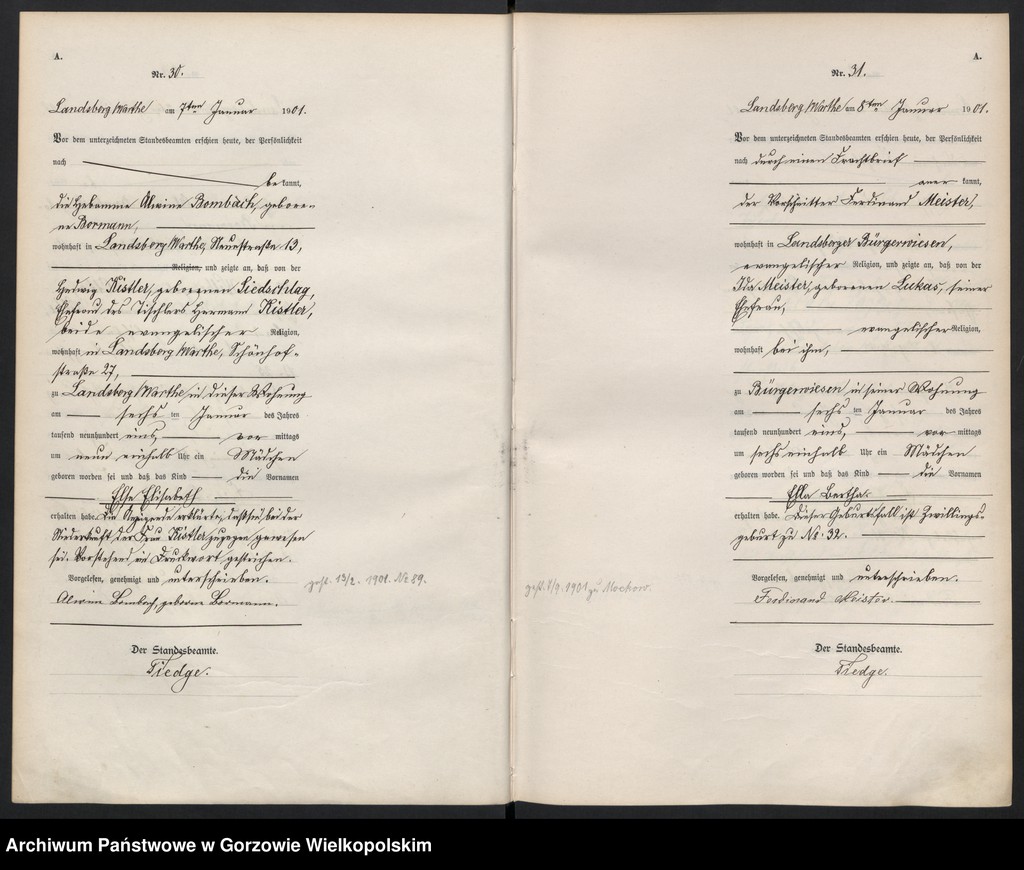 A.
Nr. 30.
Landsberg/Warthe am 7ten Januar 1901.
Vor dem unterzeichneten Standesbeamten erschien heute, der Persönlichkeit
nach
be kannt,
die Hebamme Alwine Bombach, geboren-
ne Bormann,
wohnhaft in Landsberg/Warthe, Neuestraße 13,
Religion, und zeigte an, daß von der
Hedwig Kistler, geborenen Siedschlag,
Ehefrau des Tischlers Hermann Kistler,
beide evangelischer Religion,
wohnhaft in Landsberg/Warthe, Schönhof-
straße 27,
zu Landsberg/Warthe in dieser Wohnung
am sechsten Januar des Jahres
tausend neunhundert eins, vor mittags
um neun einhalb Uhr ein Mädchen
geboren worden sei und daß das Kind die Vornamen
Else Elisabeth
erhalten habe. Die Anzeigende erklärte, daß sie bei der
Niederkunft der Frau Kistler zugegen gewesen
sei. Vorstehend ein Druckwort gestrichen.
Vorgelesen, genehmigt und unterschrieben.
Alwine Bombach, geborne Bormann.
Der Standesbeamte.
Tiedge.
gest. 13/2. 1901. No 89.
A.
Nr. 31.
Landsberg/Warthe am 8ten Januar 1901.
Vor dem unterzeichneten Standesbeamten erschien heute, der Persönlichkeit
nach durch einen Frachtbrief
aner kannt,
der Vorschnitter Ferdinand Meister,
wohnhaft in Landsberger Bürgerwiesen,
evangelischer Religion, und zeigte an, daß von der
Ida Meister, geborenen Lukas, seiner
Ehefrau,
evangelischer Religion,
wohnhaft bei ihm,
zu Bürgerwiesen in seiner Wohnung
am sechsten Januar des Jahres
tausend neunhundert eins, vor mittags
um sechs einhalb Uhr ein Mädchen
geboren worden sei und daß das Kind die Vornamen
Ella Bertha
erhalten habe. Dieser Geburtsfall ist Zwillings-
geburt zu No. 32.
Vorgelesen, genehmigt und unterschrieben.
Ferdinand Meister.
Der Standesbeamte.
Tiedge.
gest. 7/9. 1901 zu
Archiwum Państwowe w Gorzowie Wielkopolskim